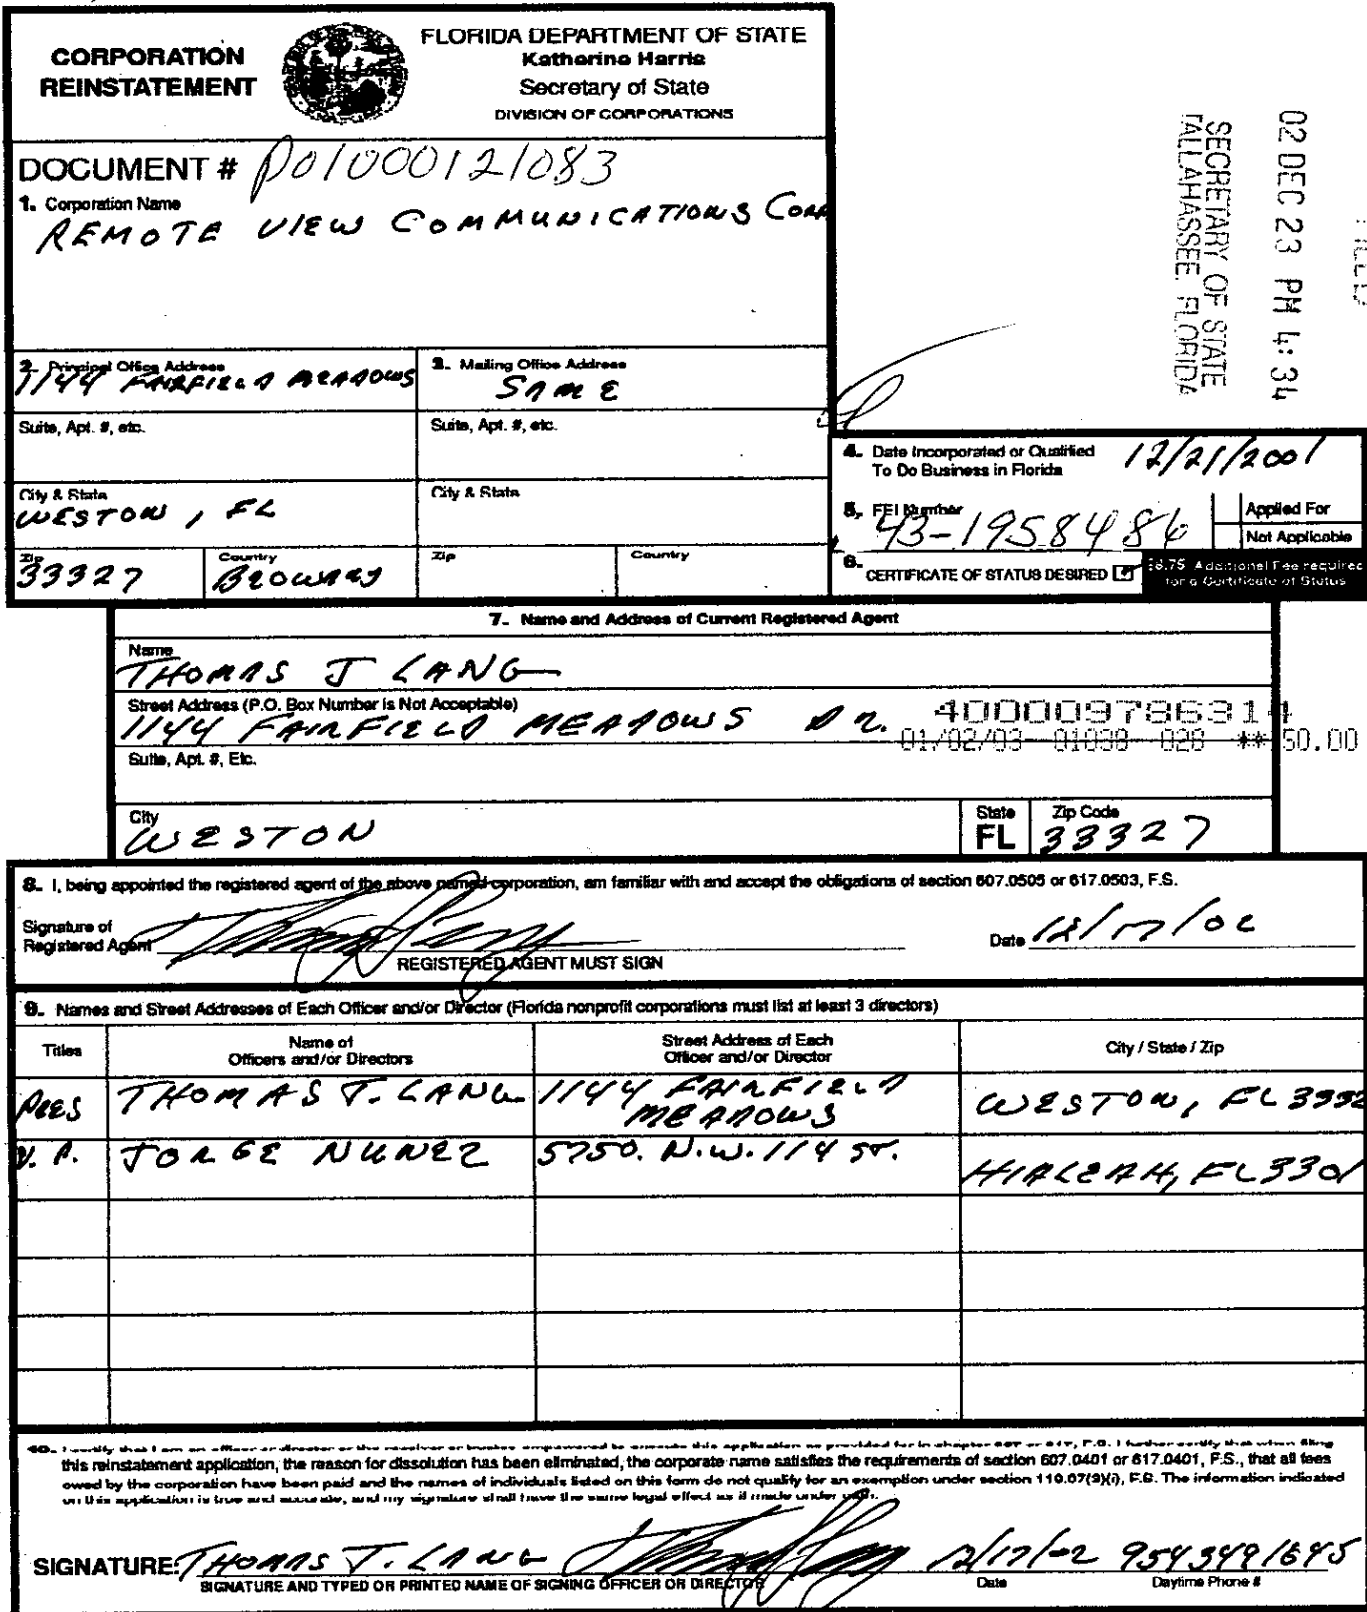 CORPORATION
REINSTATEMENT
FLORIDA DEPARTMENT OF STATE
Katherine Harris
Secretary of State
DIVISION OF CORPORATIONS
02 DEC 23 PM 4:34
SECRETARY OF STATE
TALLAHASSEE, FLORIDA
DOCUMENT # P01000121083
1. Corporation Name
REMOTE VIEW COMMUNICATIONS CORP
2. Principal Office Address
1144 FAIRFIELD MEADOWS
3. Mailing Office Address
SAME
Suite, Apt. #, etc.
Suite, Apt. #, etc.
City & State
WESTON, FL
City & State
Zip
33327
Country
BROWARD
Zip
Country
4. Date Incorporated or Qualified
To Do Business in Florida
12/21/2001
5. FEI Number
43-1958486
Applied For
Not Applicable
6. CERTIFICATE OF STATUS DESIRED
$8.75 Additional Fee required
for a Certificate of Status
7. Name and Address of Current Registered Agent
Name
THOMAS J LANG
Street Address (P.O. Box Number is Not Acceptable)
1144 FAIRFIELD MEADOWS DR.
400009786314
01/02/03 01038 028 ** 50.00
Suite, Apt. #, Etc.
City
WESTON
State
FL
Zip Code
33327
8. I, being appointed the registered agent of the above named corporation, am familiar with and accept the obligations of section 607.0505 or 617.0503, F.S.
Signature of
Registered Agent
REGISTERED AGENT MUST SIGN
Date 12/17/02
9. Names and Street Addresses of Each Officer and/or Director (Florida nonprofit corporations must list at least 3 directors)
Titles
Name of
Officers and/or Directors
Street Address of Each
Officer and/or Director
City / State / Zip
PRES THOMAS J. LANG 1144 FAIRFIELD MEADOWS WESTON, FL 3332
V.P. JORGE NUNEZ 5750 N.W. 114 ST. HIALEAH, FL 3301
10. I certify that I am an officer or director or the receiver or trustee empowered to execute this application as provided for in chapter 607 or 617, F.S. I further certify that when filing
this reinstatement application, the reason for dissolution has been eliminated, the corporate name satisfies the requirements of section 607.0401 or 617.0401, F.S., that all fees
owed by the corporation have been paid and the names of individuals listed on this form do not qualify for an exemption under section 119.07(3)(i), F.S. The information indicated
on this application is true and accurate, and my signature shall have the same legal effect as if made under oath.
SIGNATURE: THOMAS J. LANG 12/17/02 9543491645
SIGNATURE AND TYPED OR PRINTED NAME OF SIGNING OFFICER OR DIRECTOR
Date
Daytime Phone #